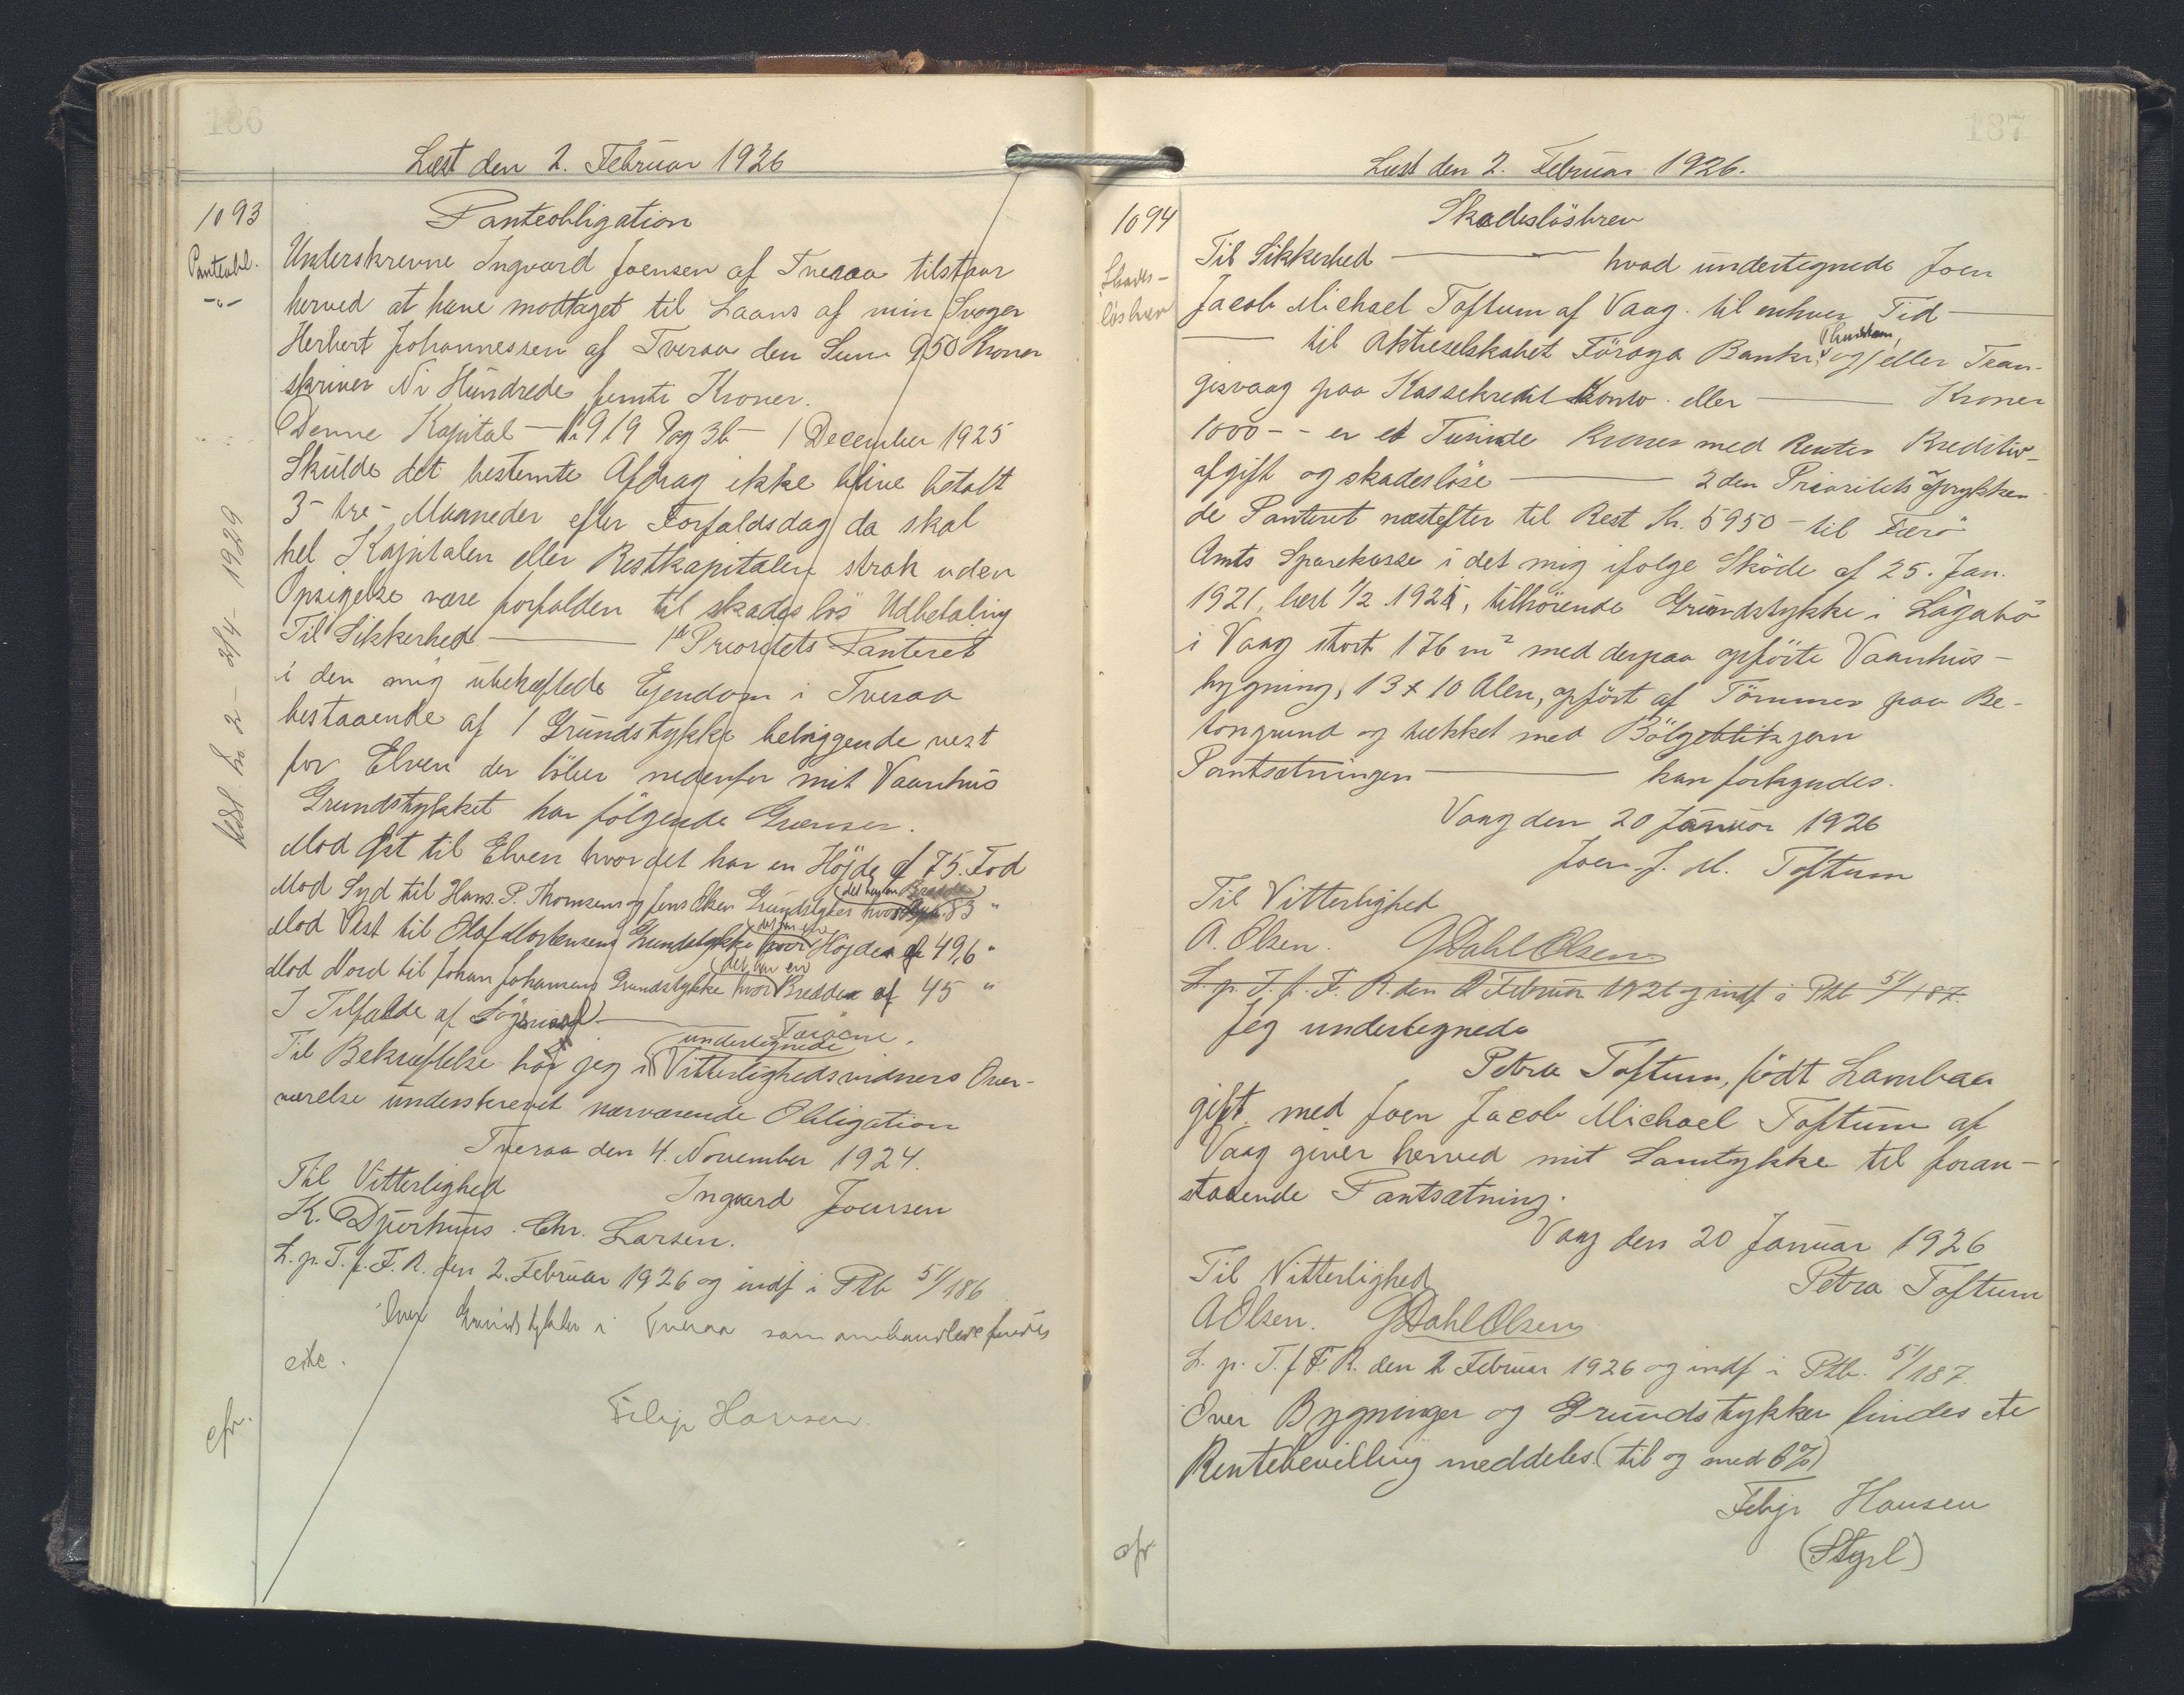 186
Læst den 2. Februar 1926
1093
Panteobligation
Panteobl.
Underskrevne Ingvard Joensen af Tveraa tilstaar
herved at have modtaget til Laans af min Svoger
Herbert Johannessen af Tveraa den Sum 950 Kroner
skriver Ni Hundrede femti Kroner.
Denne Kapital — 919 og 36 — 1 December 1925
Skulde det bestemte Afdrag ikke blive betalt
3 - tre - Maaneder efter Forfaldsdag da skal
hel Kapitalen eller Restkapitalen strak uden
Opsigelse være forfalden til skadeslös Udbetaling
Til Sikkerhed — 1ste Prioritets Panteret
i den mig ubehæftede Ejendom i Tveraa
bestaaende af 1 Grundstykke beliggende vest
for Elven der löber nedenfor mit Vaanhus
Grundstykket har fölgende Grænser.
Mod Øst til Elven hvor det har en Höjde af 75. Fod
Mod Syd til Hans. P. Thomsens og Jens Olsen Grundstykker hvor det har en Bredde 83 "
Mod Vest til Olaf Mortensens Grundstykke hvor Höjden af 49,6 "
Mod Nord til Johan Johansens Grundstykke hvor det har en Bredden af 45 "
I Tilfælde af Sögsmaal — Færöerne.
Til Bekræftelse har jeg i undertegnede Vitterlighedsvidners Over-
værelse underskrevet nærværende Obligation
Tveraa den 4. November 1924.
Til Vitterlighed
Ingvard Joensen
K. Djurhuus. Chr. Larsen.
L. p. T. f. F. R. den 2. Februar 1926 og indf i Ptb 51/186
Over Grundstykker i Tveraa som omhandlede findes
etc.
Filip Hansen.
cfr.
187
Læst den 2. Februar 1926.
1094
Skadeslösbrev
Skades-
lösbrev
Til Sikkerhed — hvad undertegnede Joen
Jacob Michael Toftum af Vaag. til enhver Tid —
— til Aktieselskabet Föroya Banki, Thorshavn, og/eller Tran-
gisvaag paa Kassekredit Konto. eller — Kroner
1000 - - er et Tusinde Kroner med Renter Kreditiv-
afgift og skadeslöse — 2den Prioritets oprykken-
de Panteret næstefter til Rest Kr. 5950 - til Færö
Amts Sparekasse i det mig ifølge Sköde af 25. Jan.
1921, læst 1/2 1921, tilhörende Grundstykke i Lágabö
i Vaag stort 176 m² med derpaa opförte Vaanhus-
bygning, 13 x 10 Alen, opfört af Tömmer paa Be-
tongrund og tækket med Bölgeblikjern
Pantsætningen — kan forkyndes.
Vaag den 20 Januar 1926
Joen J. M. Toftum
Til Vitterlighed
A. Olsen. G Dahl Olsen
L. p. T. f. F. R. den 2 Februar 1926 og indf i Ptb 51/187.
Jeg undertegnede
Petra Toftum, født Lambaa
gift med Joen Jacob Michael Toftum af
Vaag giver herved mit Samtykke til foran-
staaende Pantsætning.
Vaag den 20 Januar 1926
Til Vitterlighed
Petra Toftum
A Olsen. G Dahl Olsen
L. p. T. f F. R. den 2 Februar 1926 og indf i Ptb. 51/187.
Over Bygninger og Grundstykker findes etc
Rentebevilling meddeles (til og med 6%)
Filip Hansen
cfr.